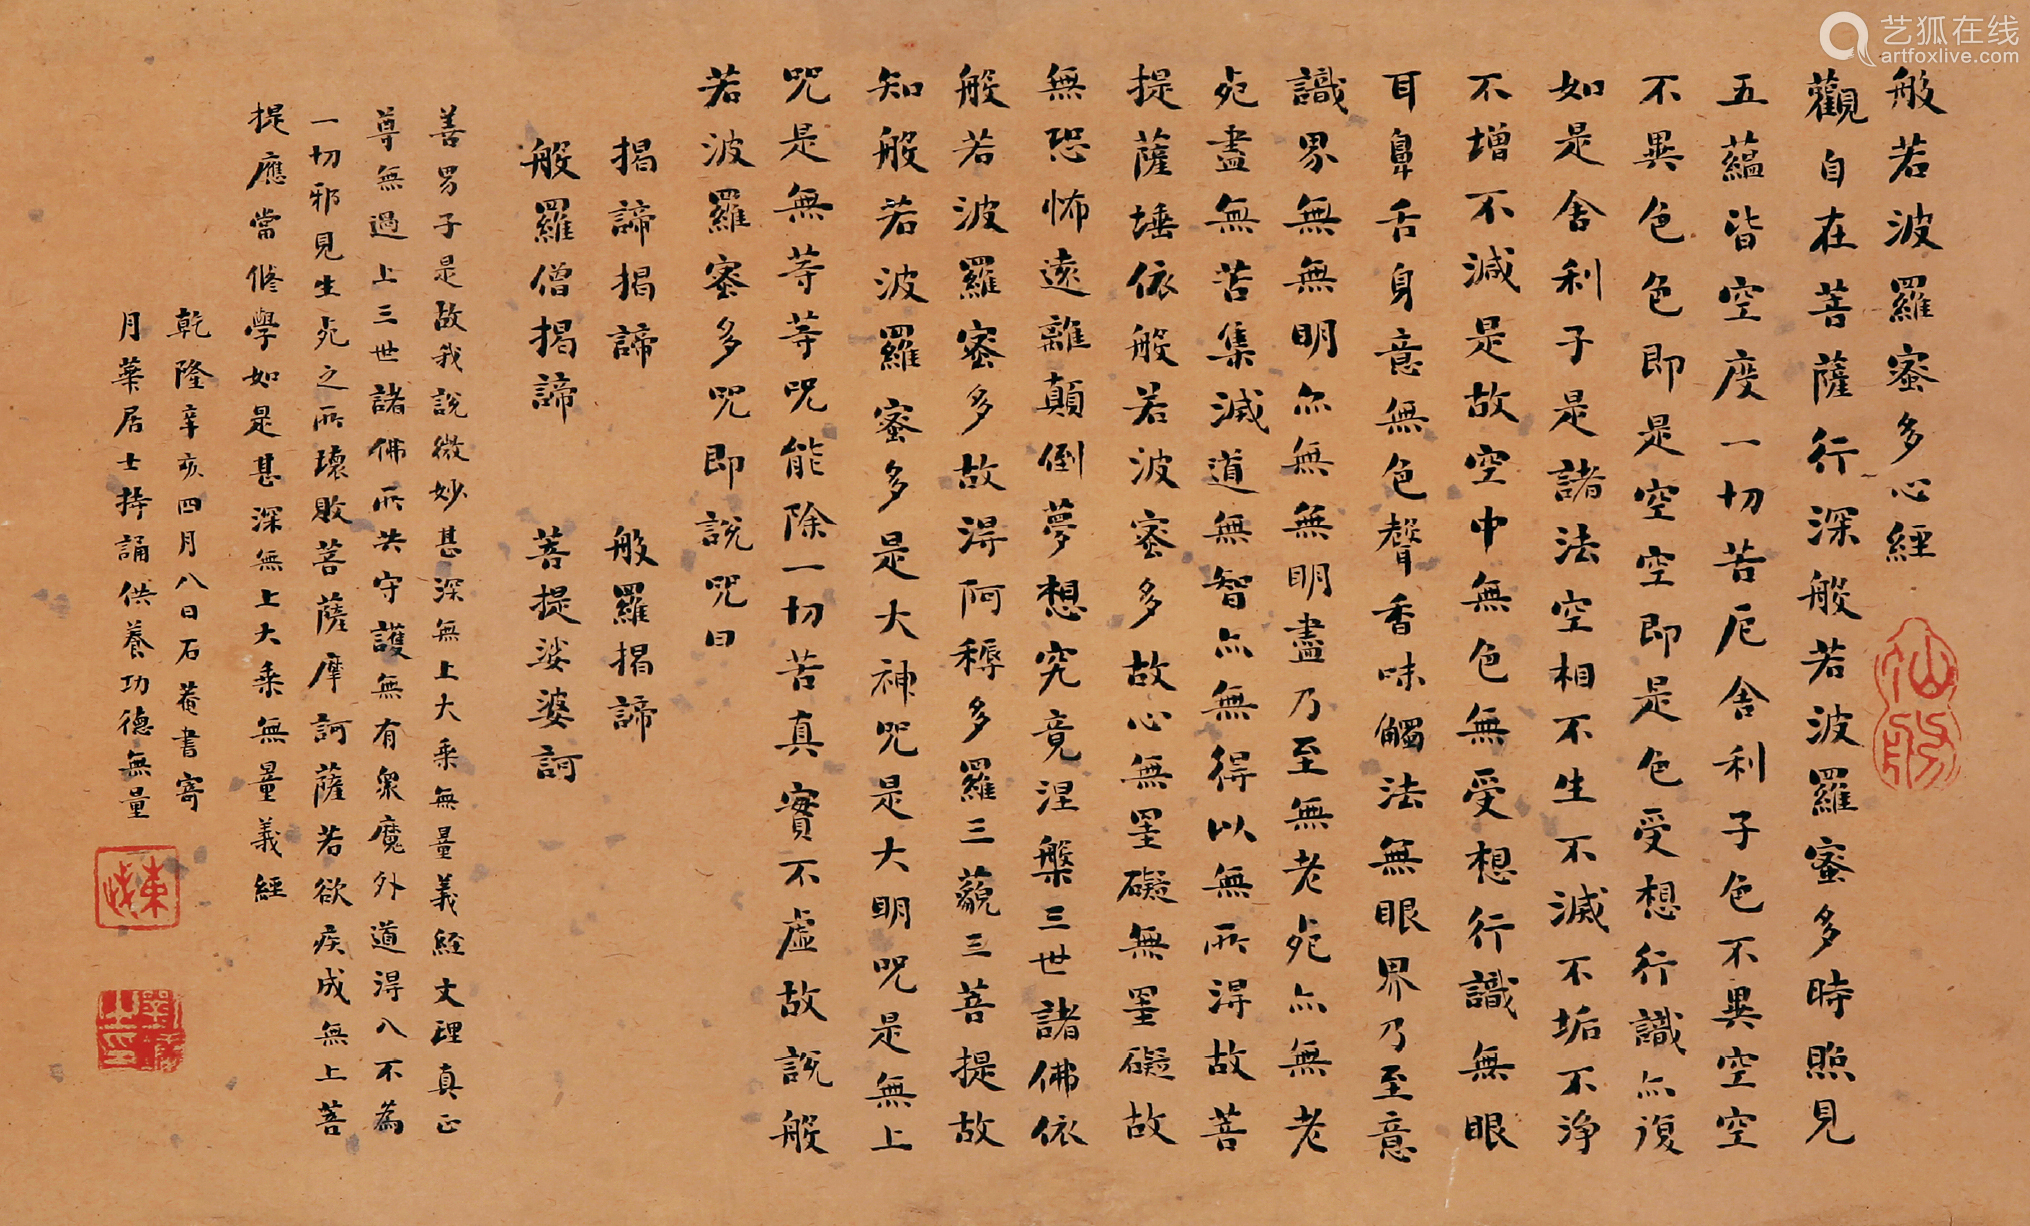 般若波羅蜜多心經
觀自在菩薩行深般若波羅蜜多時照見
五蘊皆空度一切苦厄舍利子色不異空空
不異色色即是空空即是色受想行識亦復
如是舍利子是諸法空相不生不滅不垢不淨
不增不減是故空中無色無受想行識無眼
耳鼻舌身意無色聲香味觸法無眼界乃至意
識界無無明亦無無明盡乃至無老死亦無老
死盡無苦集滅道無智亦無得以無所得故菩
提薩埵依般若波蜜多故心無罣礙無罣礙故
無恐怖遠離顛倒夢想究竟涅槃三世諸佛依
般若波羅蜜多故得阿耨多羅三藐三菩提故
知般若波羅蜜多是大神咒是大明咒是無上
咒是無等等咒能除一切苦真實不虛故說般
若波羅蜜多咒即說咒曰
揭諦揭諦 般羅揭諦
般羅僧揭諦 菩提娑婆訶
善男子是故我說微妙甚深無上大乘無量義經文理真正
尊無過上三世諸佛所共守護無有眾魔外道得入不為
一切邪見生死之所壞敗菩薩摩訶薩若欲疾成無上菩
提應當修學如是甚深無上大乘無量義經
乾隆辛亥四月八日石菴書寄
月華居士持誦供養功德無量
艺狐在线
artfoxlive.com